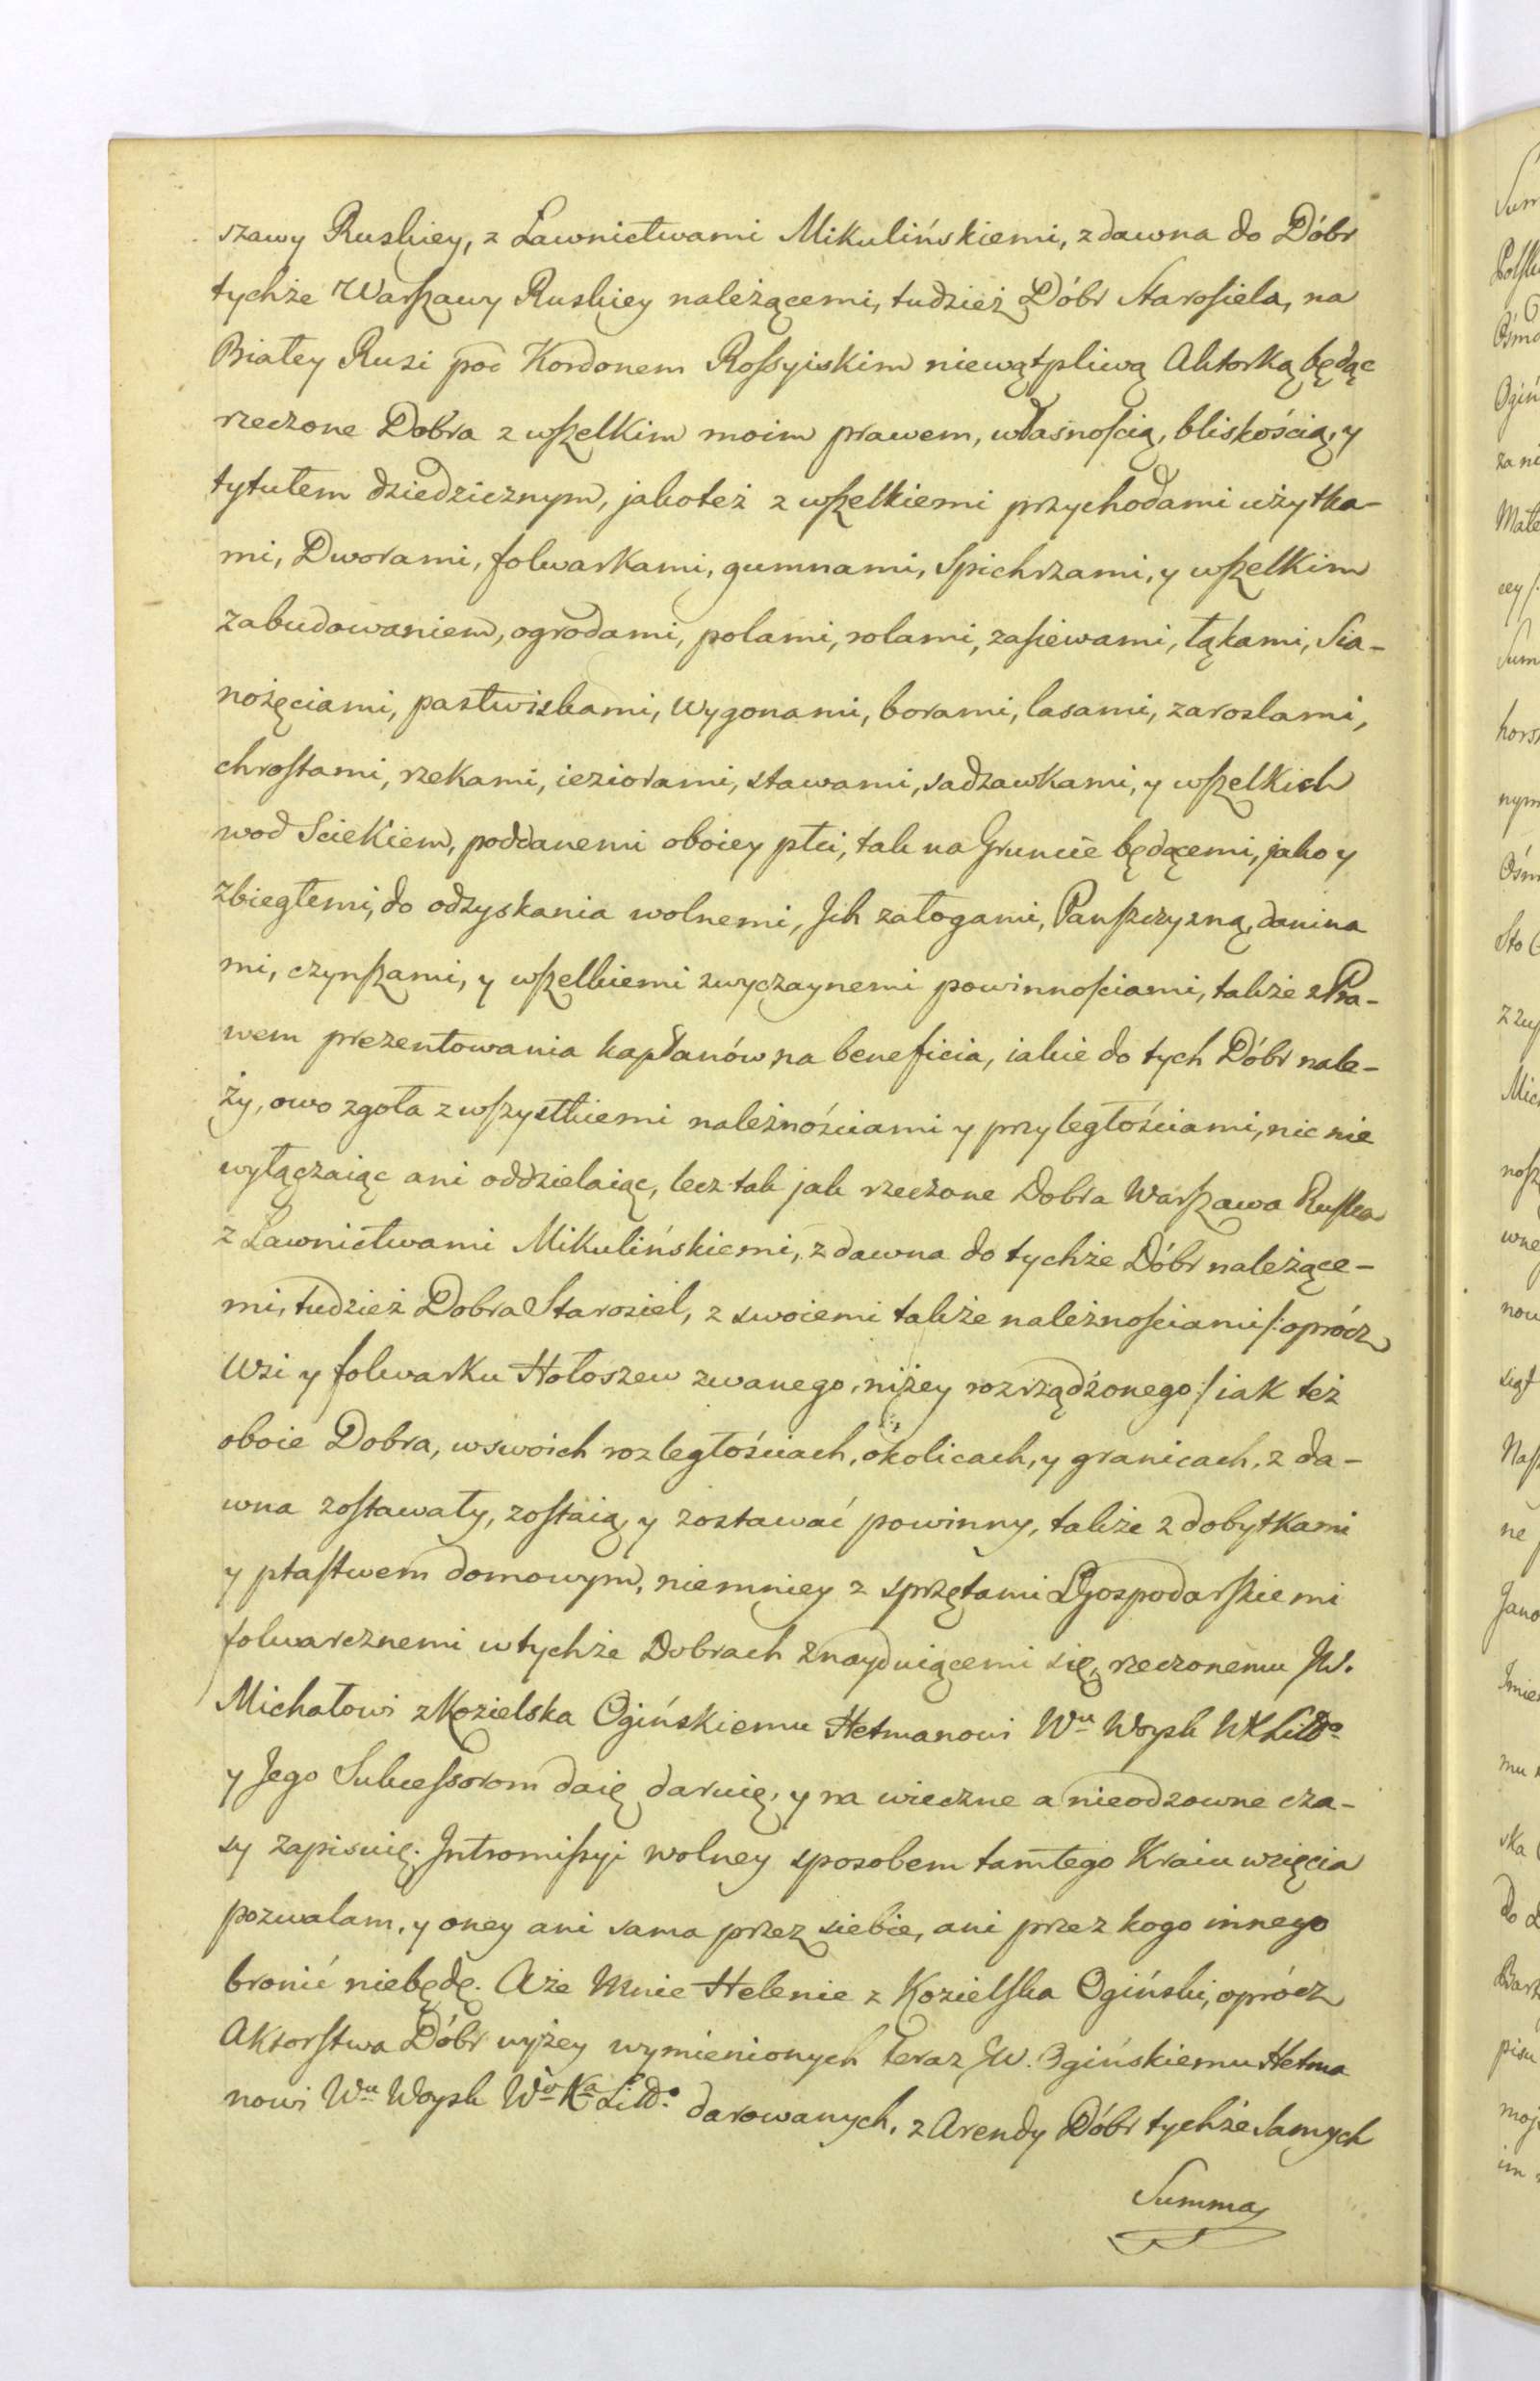 szawy Ruskiey, z Ławnictwami Mikulińskiemi, zdawna do Dóbr
tychże Warszawy Ruskiey należącemi, tudzież Dóbr Starosiela, na
Białey Rusi pod Kordonem Rossyiskim niewątpliwą Aktorką będąc
rzeczone Dobra z wszelkim moim prawem, własnością, bliskością, y
tytułem dziedzicznym, jakoteż z wszelkiemi przychodami użytka-
mi, Dworami, folwarkami, gumnami, Spichrzami, y wszelkim
zabudowaniem, ogrodami, polami, rolami, zasiewami, łąkami, Sia-
nożęciami, pastwiskami, wygonami, borami, lasami, zaroslami,
chrostami, rzekami, ieziorami, stawami, sadzawkami, y wszelkich
wod Sciekiem, poddanemi oboiey płci, tak na Gruncie będącemi, jako y
zbiegłemi, do odzyskania wolnemi, Jch załogami, Panszczyzną, danina
mi, czynszami, y wszelkiemi zwyczaynemi powinnościami, także z Pra-
wem prezentowania kapłanów na beneficia, iakie do tych Dóbr nale-
ży, owo zgoła z wszystkiemi należnościami y przyległościami, nic nie
wyłączaiąc ani oddzielaiąc, lecz tak jak rzeczone Dobra Warszawa Ruska
z Ławnictwami Mikulińskiemi, zdawna do tychże Dóbr należące-
mi, tudzież Dobra Starosiel, z swoiemi także należnościami /: oprócz
Wsi y folwarku Hołoszew zwanego, niżey rozrządzonego :/ iak też
oboie Dobra, w swoich rozległościach, okolicach, y granicach, z da-
wna zostawały, zostaią, y zostawać powinny, także z dobytkami
y ptastwem domowym, niemniey z sprzętami Gospodarskiemi
folwarcznemi w tychże Dobrach znayduiącemi się, rzeczonemu JW.
Michałowi z Kozielska Ogińskiemu Hetmanowi Wu Woysk WXLitto
y Jego Sukcessorom daię daruię, y na wieczne a nieodzowne cza-
sy zapisuię. Jntromissyi wolney sposobem tamtego Kraiu wzięcia
pozwalam, y oney ani sama przez siebie, ani przez kogo innego
bronić niebędę. Aże Mnie Helenie z Kozielska Ogiński, oprócz
Aktorstwa Dóbr wyżey wymienionych teraz JW. Ogińskiemu Hetma
nowi Wu Woysk Wo Xa Litto darowanych, z Arendy Dóbr tychże Samych
Summa